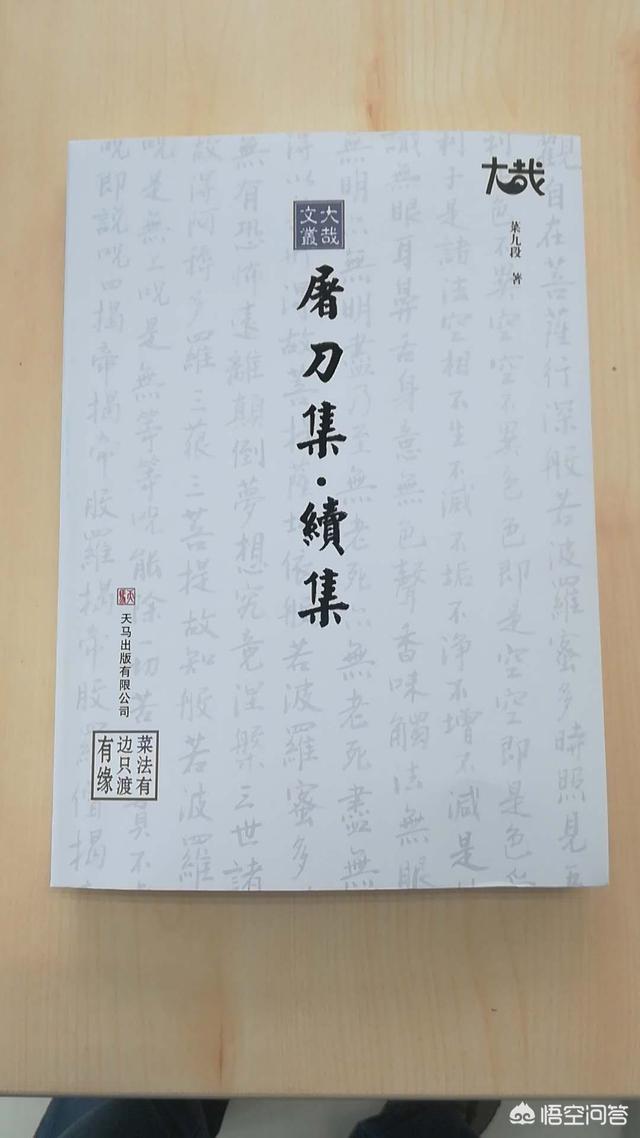 大哉
菜九段 著
大哉
文叢
屠刀集·續集
天马出版有限公司
菜法有
边只渡
有缘
觀自在菩薩行深般若波羅蜜多時照見五
色不異空空不異色色即是空空即是色
利子是諸法空相不生不滅不垢不淨不增不減是
識無眼耳鼻舌身意無色聲香味觸法無眼
無明無明盡乃至無老死無老死盡無
得以故菩提薩依般若波羅蜜多
無有恐怖遠離顛倒夢想究竟涅槃三世諸
故得阿耨多羅三藐三菩提故知般若波羅
呪是無上呪是無等等呪能除一切苦真不
呪即說呪曰揭帝揭帝般羅揭帝般羅僧揭
悟空问答